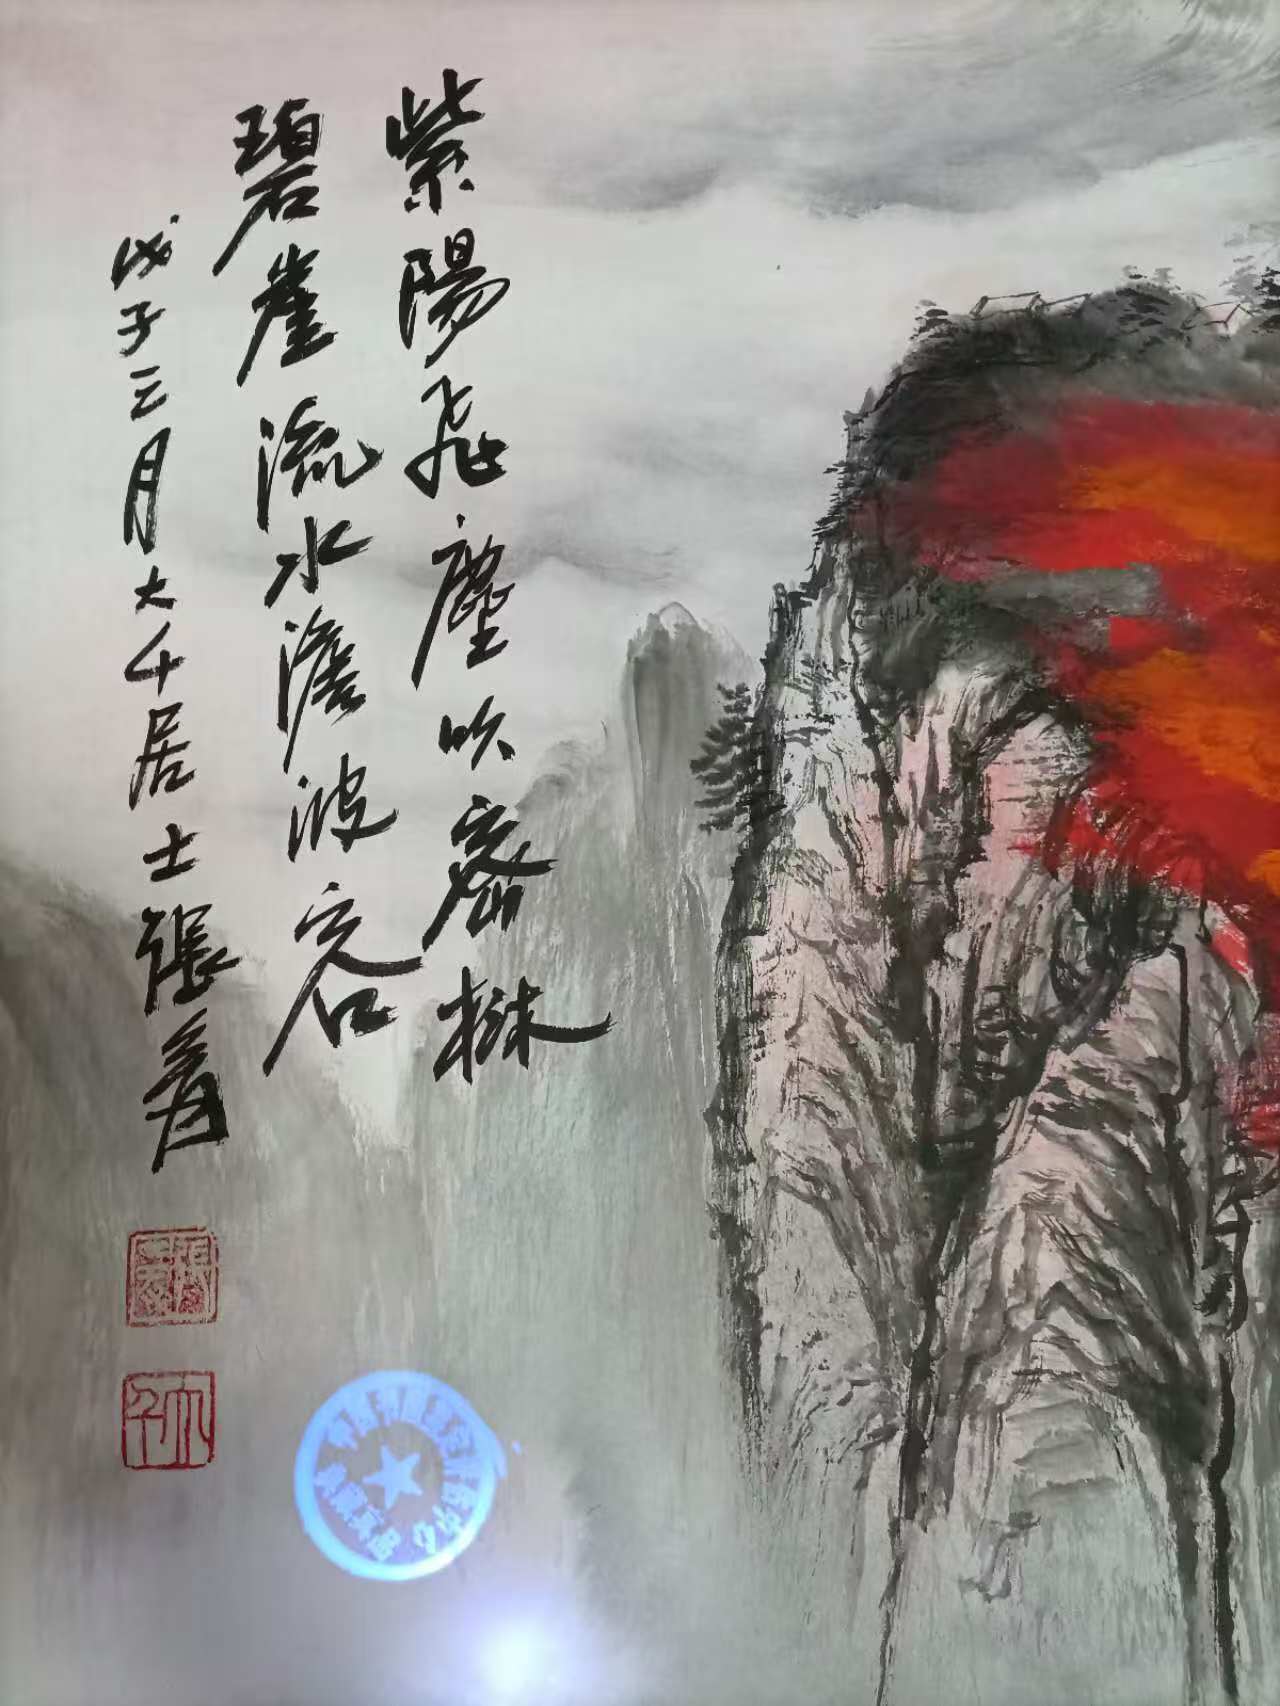 紫陽飛塵吹密樹
碧崖流水澹波容
戊子三月大千居士張爰
大千